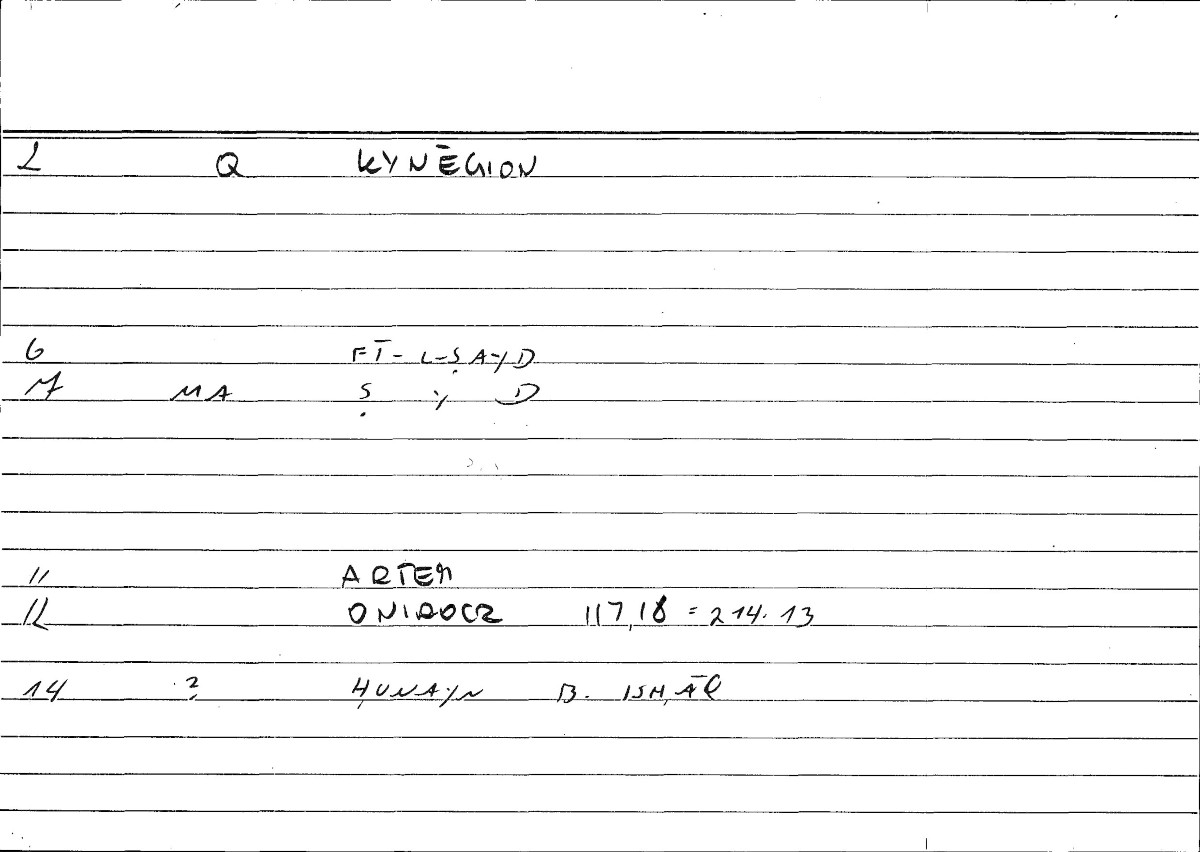 2 Q KYNĒGION
6 FĪ-L-ṢAYD
7 MA Ṣ Y D
11 ARTEM
12 ONIROCR 117,18 = 214.13
14 ? ḤUNAYN B. ISḤĀQ